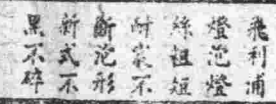 飛利浦
燈泡燈
絲粗短
耐震不
斷泡形
新式不
黑不碎